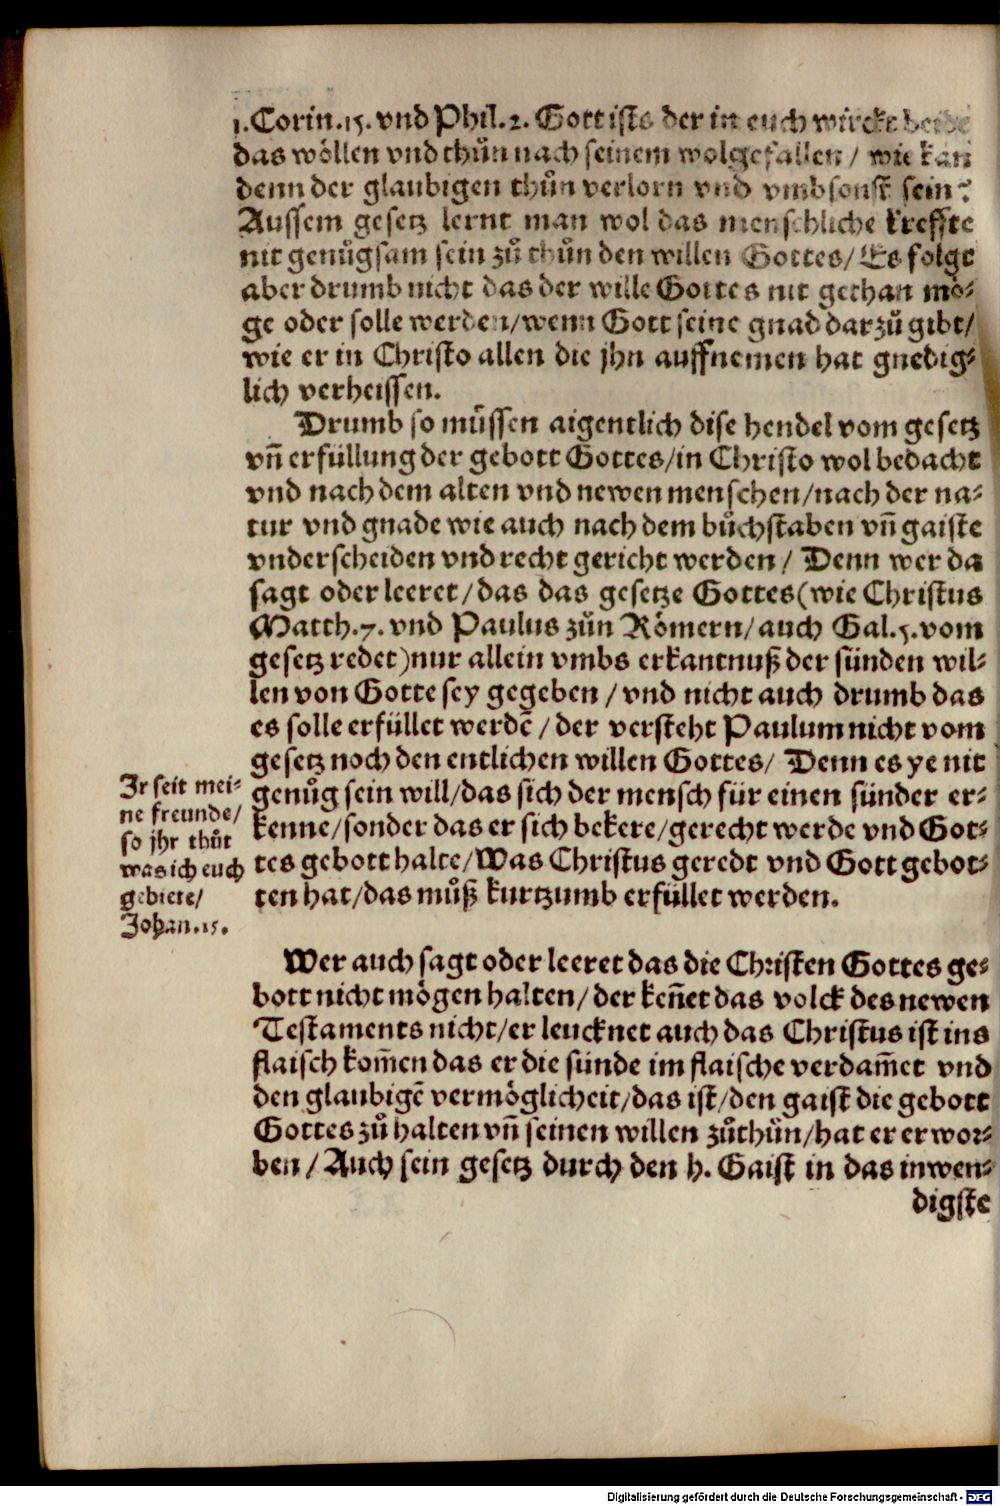 1.Corin.15. vnd Phil.2. Gott ists der in euch wirckt beide
das wöllen vnd thůn nach seinem wolgefallen / wie kan
denn der glaubigen thůn verlorn vnd vmbsonst sein?
Aussem gesetz lernt man wol das menschliche kreffte
nit genůgsam sein zů thůn den willen Gottes/ Es folgt
aber drumb nicht das der wille Gottes nit gethan mö-
ge oder solle werden/wenn Gott seine gnad darzů gibt/
wie er in Christo allen die jhn auffnemen hat gnedig-
lich verheissen.
Drumb so müssen aigentlich dise hendel vom gesetz
vn̄ erfüllung der gebott Gottes/in Christo wol bedacht
vnd nach dem alten vnd newen menschen/nach der na-
tur vnd gnade wie auch nach dem bůchstaben vn̄ gaiste
vnderscheiden vnd recht gericht werden / Denn wer da
sagt oder leeret /das das gesetze Gottes (wie Christus
Matth.7. vnd Paulus zůn Römern/ auch Gal.5. vom
gesetz redet) nur allein vmbs erkantnuß der sünden wil-
len von Gotte sey gegeben / vnd nicht auch drumb das
es solle erfüllet werdē / der versteht Paulum nicht vom
gesetz noch den entlichen willen Gottes/ Denn es ye nit
genůg sein will/das sich der mensch für einen sünder er-
kenne/sonder das er sich bekere/gerecht werde vnd Got-
tes gebott halte/Was Christus geredt vnd Gott gebot-
ten hat/das můß kurtzumb erfüllet werden.
Ir seit mei-
ne freunde/
so jhr thůt
was ich euch
gebiete/
Johan.15.
Wer auch sagt oder leeret das die Christen Gottes ge-
bott nicht mögen halten/ der ken̄et das volck des newen
Testaments nicht/er leucknet auch das Christus ist ins
flaisch kom̄en das er die sünde im flaische verdam̄et vnd
den glaubigē vermöglicheit/das ist/den gaist die gebott
Gottes zů halten vn̄ seinen willen zůthůn/hat er erwor-
ben / Auch sein gesetz durch den h. Gaist in das inwen-
digste
Digitalisierung gefördert durch die Deutsche Forschungsgemeinschaft - DFG